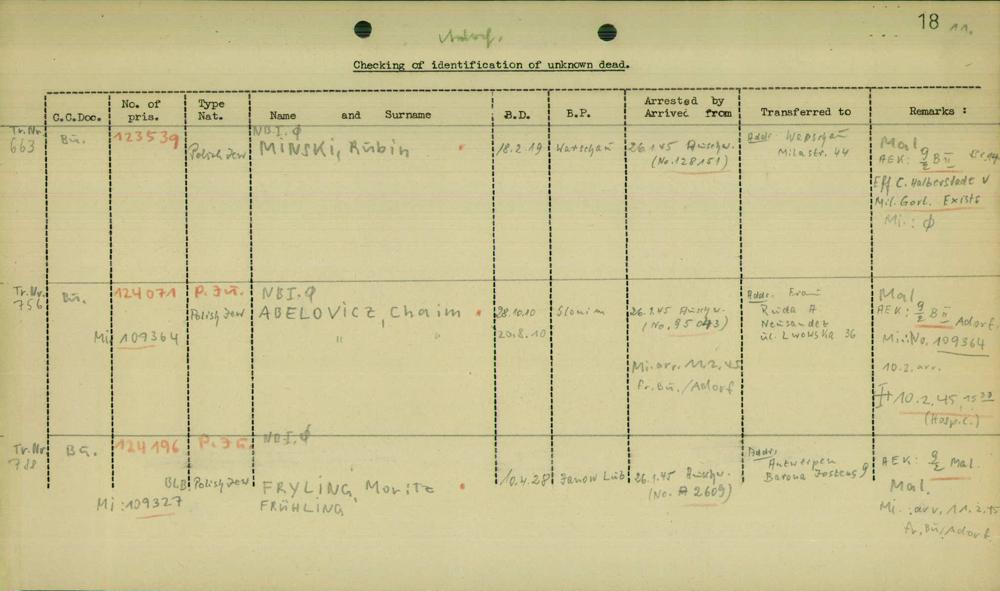 18 11.
Adorf.
Checking of identification of unknown dead.
C.C.Doc. No. of pris. Type Nat. Name and Surname B.D. B.P. Arrested by Arrived from Transferred to Remarks :
Tr.Nr. 663 Bu. 123539
NBI.Ø
Polish Jew MINSKI, Rubin 18.2.19 Warschau 26.1.45 Auschw. (No. 128151)
Addr. Warschau
Milastr. 44
Mal
AEK: g/Z B II
Eff C. Halberstadt V
Mil. Gorl. Exists
Mi.: Ø
Tr.Nr. 756 Bu. 124071 P. Ju. NBI.Ø
Polish Jew ABELOVICZ, Chaim 28.10.10 Slonim 26.1.45 Auschw.
(No. 95043)
Mi 109364 " " 20.8.10
Mi. arr. 11.2.45
fr. Bu. / Adorf
Addr. Frau
Ruda A
Neusandez
ul. Lwowska 36
Mal
AEK: g/Z B II Adorf
Mi.: No. 109364
10.2. arr.
I + 10.2.45, 15 30
(Hosp. C.)
Tr.Nr. 788 Bu. 124196 P. Ju. NBI.Ø
BLB Polish Jew FRYLING, Moritz 10.4.28 Janow Lub 26.1.45 Auschw.
Mi: 109327 FRÜHLING (No. A 2609)
Addr.
Antwerpen
Barona 9
AEK: g/Z Mal.
Mal.
Mi.: arr. 11.2.45
fr. Bu/Adorf